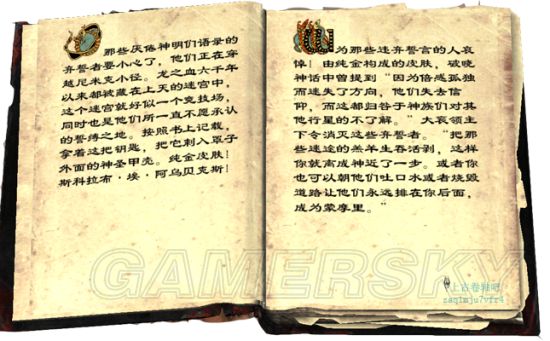 那些厌倦神明们语录的
弃誓者要小心了，他们正在穿
越尼米克小径。龙之血六千年
以来都被藏在上天的迷宫中，
这个迷宫就好似一个竞技场，
同时也是他们所一直不愿承认
的誓缚之地。按照书上记载，
拿着这把钥匙，把它刺入罩子
外面的神圣甲壳。纯金皮肤！
斯科拉布·埃·阿乌贝克斯！
为那些迷弃誓言的人哀
悼！由纯金构成的皮肤，破晓
神话中曾提到“因为倍感孤独
而迷失了方向，他们失去信
仰，而这都归于神族们对其
他行星的不了解。”大哀领主
下令消灭这些弃誓者。“把那
些迷途的羔羊生吞活剥，这样
你就离成神近了一步。或者你
也可以朝他们吐口水或者烧毁
道路让他们永远排在你后面，
成为蒙摩里。”
GAMERSKY
上古卷轴吧
zaq1mju7vfr4